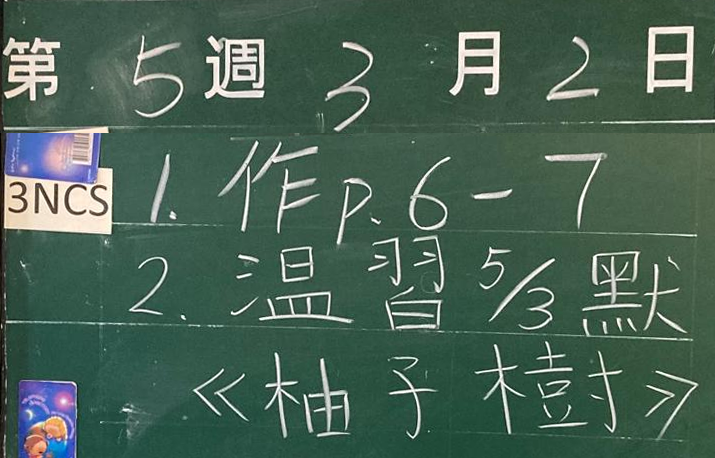 第5週3月2日
3NCS
1. 作p.6-7
2. 溫習5/3默
《柚子樹》